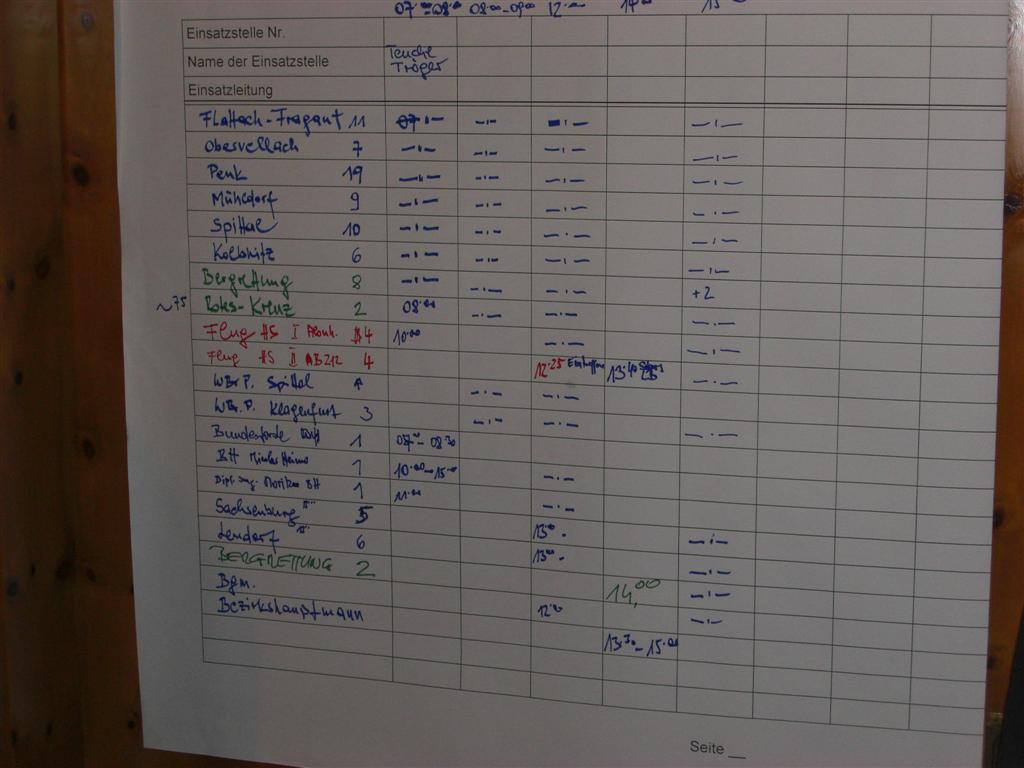 07.00-08.00 08.00-09.00 12.00 14.00 15.00
Einsatzstelle Nr.
Name der Einsatzstelle Teuchl Tröger
Einsatzleitung
Flattach-Fragant 11 -·- -·- -·- -·-
Obervellach 7 -·- -·- -·- -·-
Penk 19 -·- -·- -·- -·-
Mühldorf 9 -·- -·- -·- -·-
Spittal 10 -·- -·- -·- -·-
Kolbnitz 6 -·- -·- -·- -·-
Bergrettung 8 -·- -·- -·- +2
~75 Rotes-Kreuz 2 08.00 -·- -·- -·-
Flug HS I 4 10.00 -·- -·-
Flug HS II AB212 4 12.25 13.40
WBr.P. Spittal -·- -·- -·-
WBr.P. Klagenfurt 3 -·- -·-
Bundesforste 1 07.00-08.30 -·-
BH 1 10.00-15.00 -·-
Dipl. Ing. BH 1 11.00 -·-
Sachsenburg 5 13.00 -·-
Lendorf 6 13.00 -·-
BERGRETTUNG 2 14,00 -·-
Bgm. 12.00 -·-
Bezirkshauptmann 13.30-15.00
Seite __